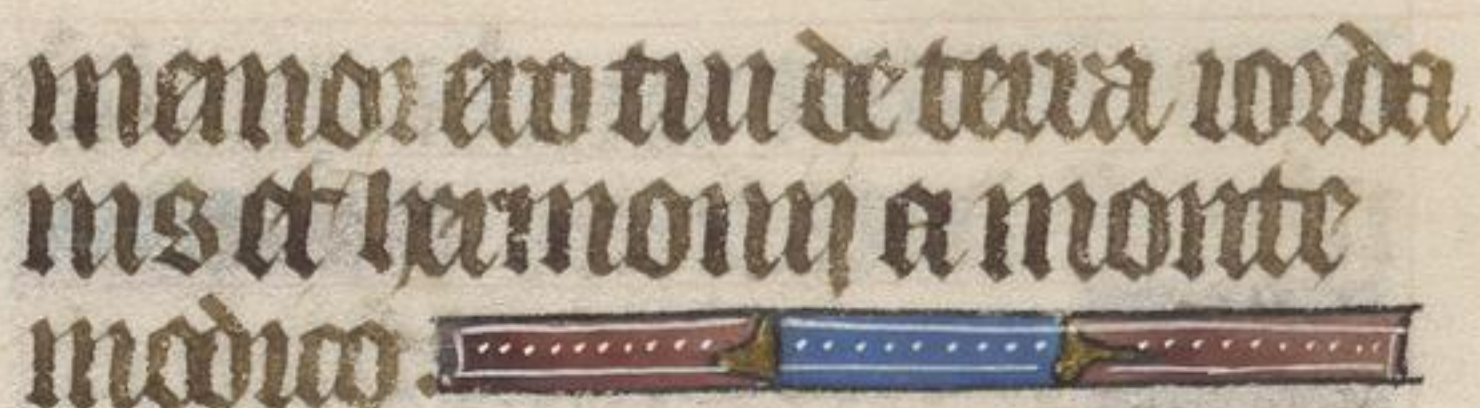 memor ero tui de terra iorda
nis et hermonij a monte
modico.